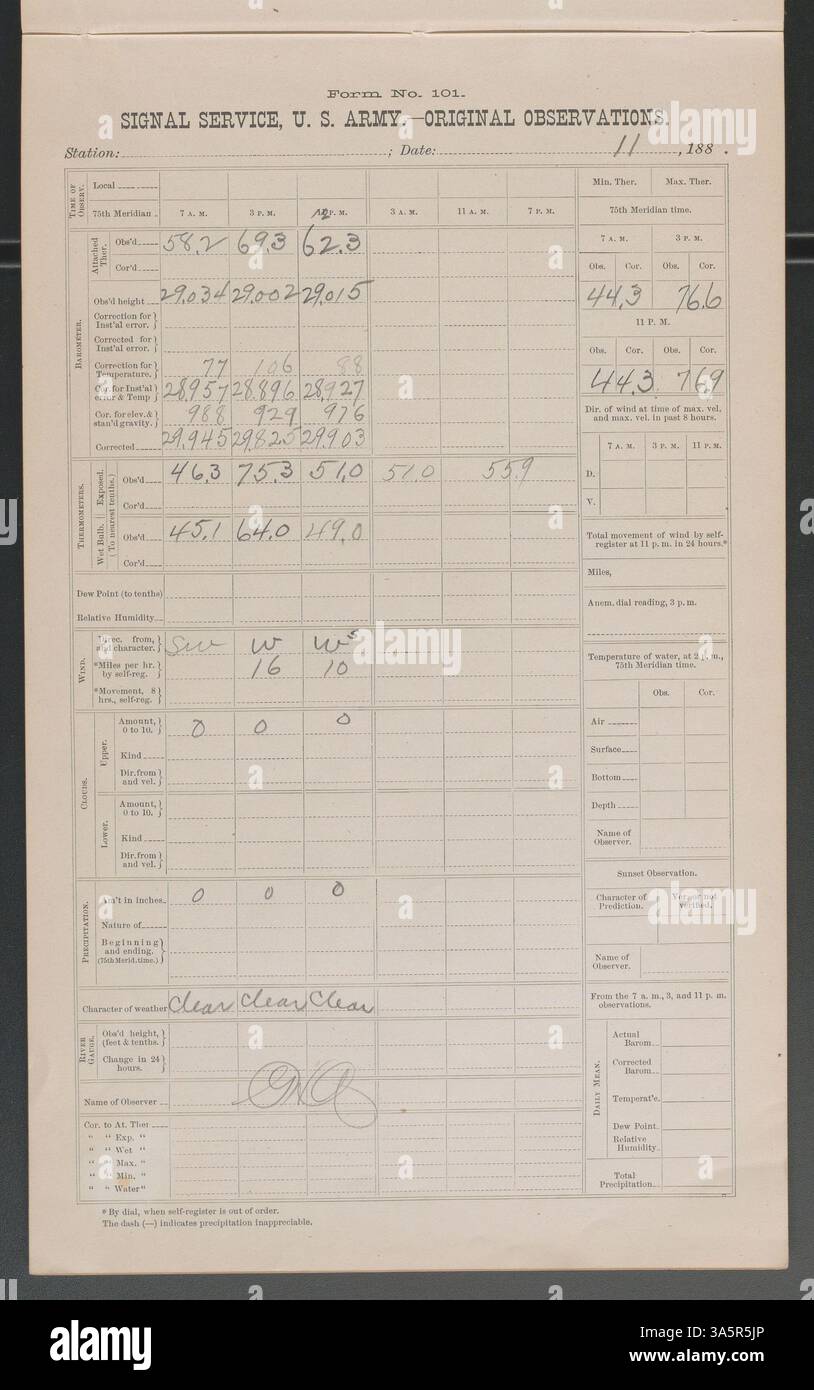 Form No. 101.
SIGNAL SERVICE, U. S. ARMY.—ORIGINAL OBSERVATIONS.
Station: ; Date: 11, 188 .
TIME OF OBSERV.
Local
75th Meridian 7 A. M. 3 P. M. 12 P. M. 3 A. M. 11 A. M. 7 P. M.
BAROMETER.
Attached Ther.
Obs'd 58.2 69.3 62.3
Cor'd
Obs'd height 29.034 29.002 29.015
Correction for Inst'al error.
Corrected for Inst'al error.
Correction for Temperature. 77 106 88
Cor. for Inst'al error & Temp 28.957 28.896 28.927
Cor. for elev. & stan'd gravity. 988 929 976
Corrected 29.945 29.825 29.903
THERMOMETERS.
Exposed.
Wet Bulb.
(To nearest tenths.)
Obs'd 46.3 75.3 51.0 51.0 55.9
Cor'd
Obs'd 45.1 64.0 49.0
Cor'd
Dew Point (to tenths)
Relative Humidity
WIND.
Direc. from, and character. SW W W
*Miles per hr. by self-reg. 16 10
*Movement, 8 hrs., self-reg.
CLOUDS.
Upper.
Amount, 0 to 10. 0 0 0
Kind
Dir. from and vel.
Lower.
Amount, 0 to 10.
Kind
Dir. from and vel.
PRECIPITATION.
Am't in inches 0 0 0
Nature of
Beginning and ending. (75th Merid. time.)
Character of weather Clear Clear Clear
RIVER GAUGE.
Obs'd height, (feet & tenths.)
Change in 24 hours.
Name of Observer
Cor. to At. Ther
" " Exp. "
" " Wet "
" " Max. "
" " Min. "
" " Water "
* By dial, when self-register is out of order.
The dash (—) indicates precipitation inappreciable.
Min. Ther. Max. Ther.
75th Meridian time.
7 A. M. 3 P. M.
Obs. Cor. Obs. Cor.
44.3 76.6
11 P. M.
Obs. Cor. Obs. Cor.
44.3 76.9
Dir. of wind at time of max. vel. and max. vel. in past 8 hours.
7 A. M. 3 P. M. 11 P. M.
D.
V.
Total movement of wind by self-register at 11 p. m. in 24 hours.*
Miles,
Anem. dial reading, 3 p. m.
Temperature of water, at 2 p. m., 75th Meridian time.
Obs. Cor.
Air
Surface
Bottom
Depth
Name of Observer.
Sunset Observation.
Character of Prediction. Ver. or not verified.
Name of Observer.
From the 7 a. m., 3, and 11 p. m. observations.
DAILY MEAN.
Actual Barom.
Corrected Barom.
Temperat'e.
Dew Point.
Relative Humidity.
Total Precipitation.
alamy
a
alamy
Image ID: 3A5R5JP
www.alamy.com